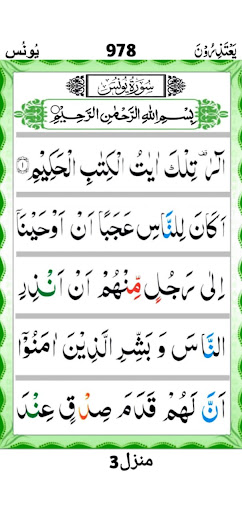 یُونُس 978 یَعْتَذِرُوْنَ
سُوْرَةُ یُوْنُسَ
بِسْمِ اللّٰهِ الرَّحْمٰنِ الرَّحِیْمِ
الٓرٰ ۫ تِلْكَ اٰیٰتُ الْكِتٰبِ الْحَكِیْمِ ۝۱
اَكَانَ لِلنَّاسِ عَجَبًا اَنْ اَوْحَیْنَاۤ
اِلٰی رَجُلٍ مِّنْهُمْ اَنْ اَنْذِرِ
النَّاسَ وَ بَشِّرِ الَّذِیْنَ اٰمَنُوْۤا
اَنَّ لَهُمْ قَدَمَ صِدْقٍ عِنْدَ
منزل3